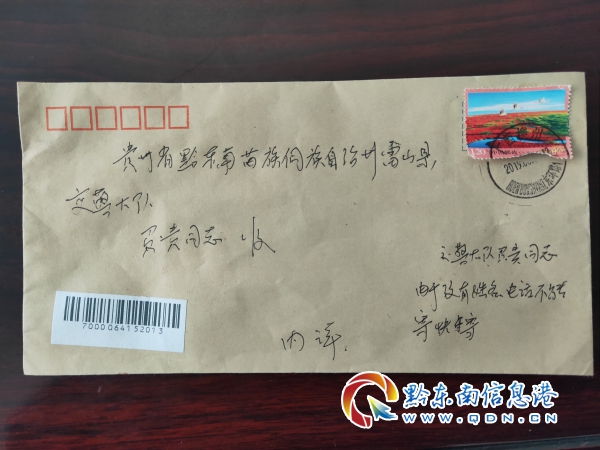 贵州省黔东南苗族侗族自治州雷山县
交警大队
负责同志 收
交警大队负责同志
由于没有姓名电话不能
寄快寄
内详.
7000064152013
2019.
黔东南信息港
WWW.QDN.CN